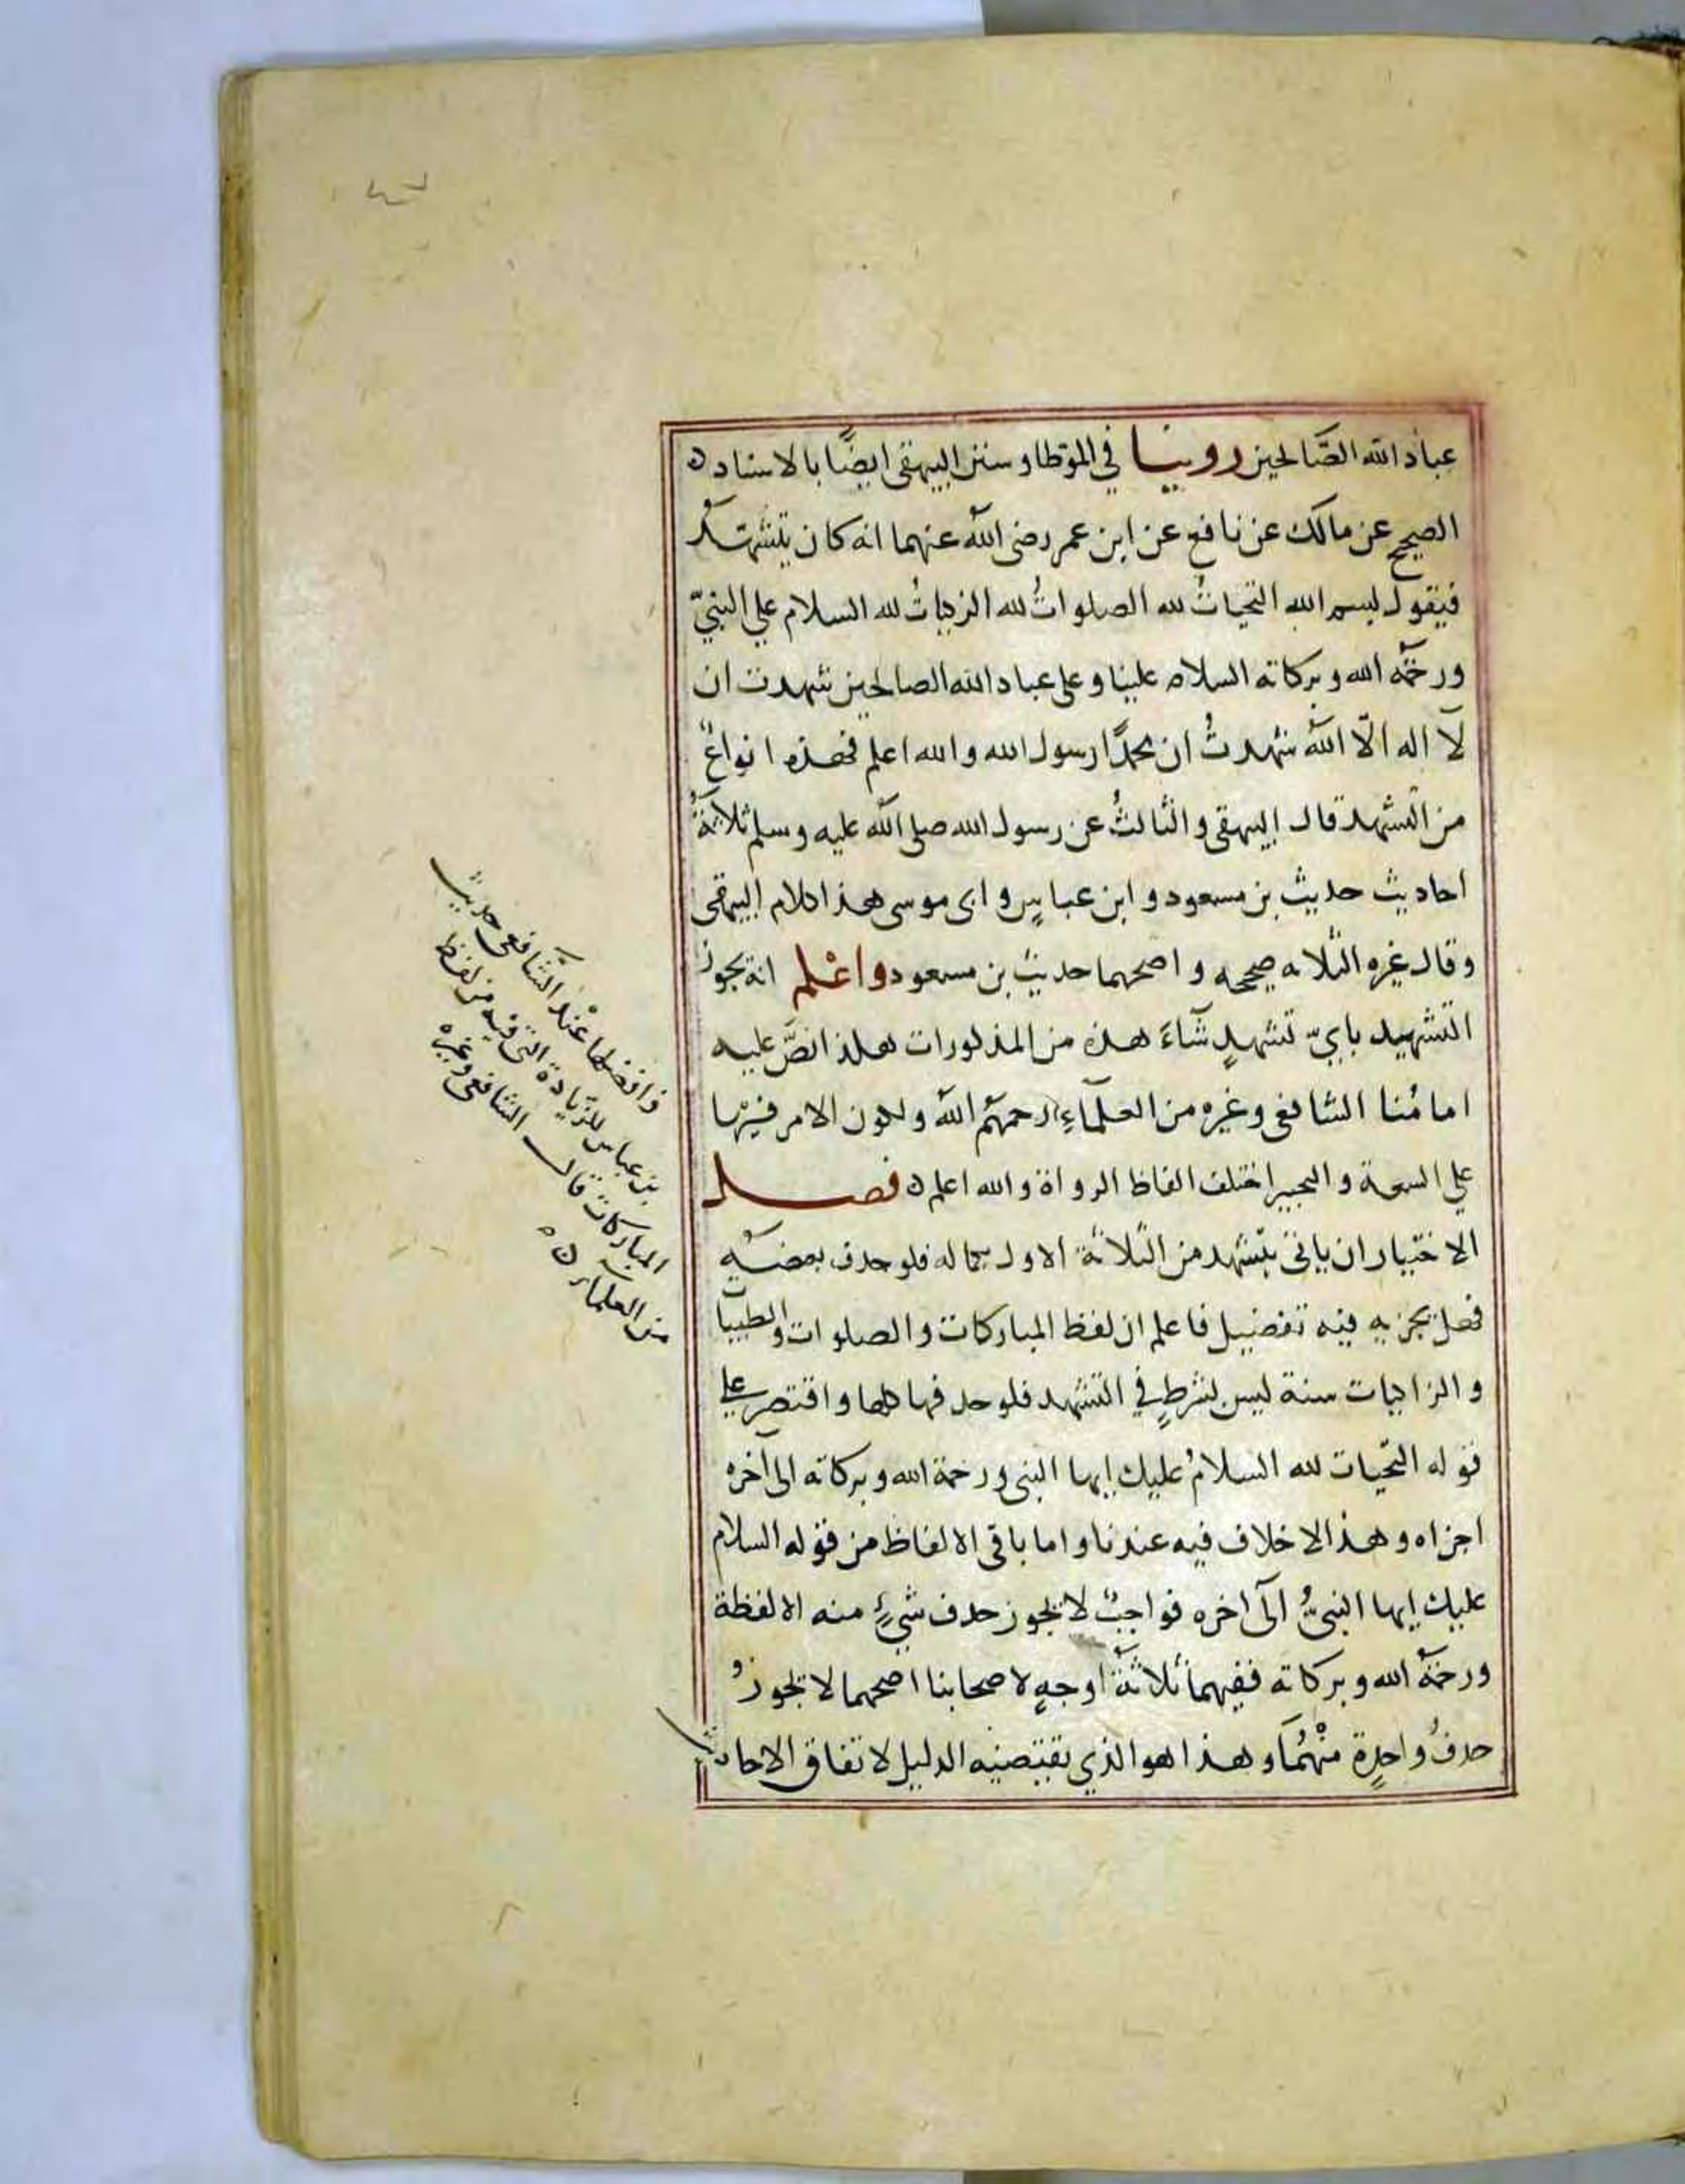 عباد الله الصَّالحين روينا في الموَطا وسنن البيهقى ايضًا بالاسناد ه
الصحيح عن مالك عن نافع عن ابن عمر رضى الله عنهما انه كان يتشهد
فيقول بسم الله التحيات لله الصلواتُ لله الزاكياتُ لله السلام على النبيّ
ورحمة الله وبركاته السلام علينا وعلى عباد الله الصالحين شهدت ان
لا اله الّا الله شهدتُ ان محمدًا رسول الله والله اعلم فهذه انواعٌ
من التشهد قال البيهقى والثالثُ عن رسول الله صلى الله عليه وسلم ثلاثةُ
احاديث حديث بن مسعود وابن عباسٍ وابى موسى هذا كلام البيهقى
وقال غيره الثلاثه صحيحه واصحهما حديث بن مسعود واعْلم انه يجوز
التشهيد بايّ تشهدٍ شآءَ هذه من المذكورات هكذا نصَّ عليه
امامُنا الشافعى وغيره من العلمآءِ رحمهم الله ولكون الامر فيها
على السعة والتخيير اختلف الفاظ الرواة والله اعلم ه فصل
الاختيار ان ياتى بتشهد من الثلاثة الاول بكماله فلو حذف بعضه
فهل يجزيه فيه تفضيل فاعلم ان لفظ المباركات والصلوات والطيبات
والزاكيات سنة ليس بشرطٍ في التشهد فلو حذفها كلها واقتصر على
قوله التحيات لله السلامُ عليك ايها النبى ورحمة الله وبركاته الى آخره
اجزاه وهذا لا خلاف فيه عندنا واما باقى الالفاظ من قوله السلام
عليك ايها النبىُّ الى آخره فواجبٌ لا يجوز حذف شيءٍ منه الا لفظة
ورحمةُ الله وبركاته ففيهما ثلاثةُ اوجهٍ لاصحابنا اصحهما لا يجوزُ
حذفُ واحدةٍ منْهُمَا وهذا هو الذي يقتضيه الدليل لاتفاق الاحاديث
وافضلها عنْد الشافعى حديث
بن عباس للزيادة التى فيه من لفظ
المباركات قال الشافعى وغيره
من العلماء